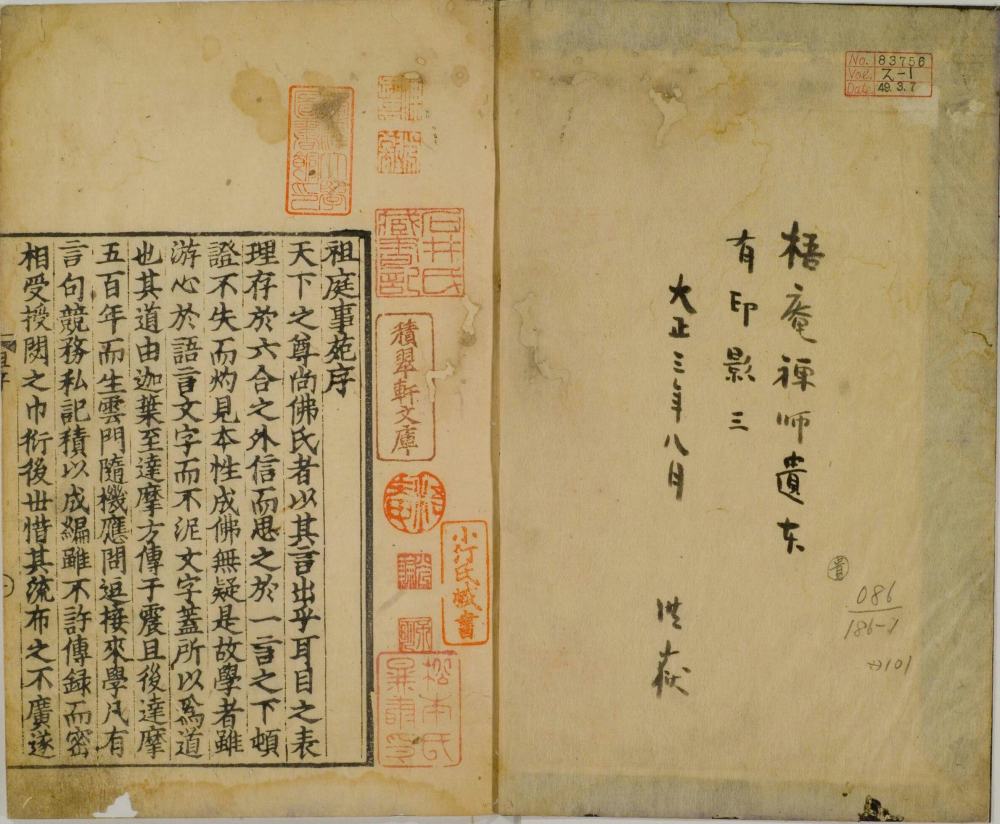 No. 83756
Vol. ス-1
Date 49.3.7
梧庵禅师遺东
有印影三
大正三年八月
洪嶽
086
186-1
石井氏藏書記
積翠軒文庫
小汀氏蔵書
祖庭事苑序
天下之尊尚佛氏者以其言出乎耳目之表
理存於六合之外信而思之於一言之下頓
證不失而灼見本性成佛無疑是故學者雖
游心於語言文字而不泥文字蓋所以為道
也其道由迦葉至達摩方傳于震旦後達摩
五百年而生雲門隨機應問逗接來學凡有
言句競務私記積以成編雖不許傳録而密
相受授閟之巾衍後世惜其流布之不廣遂